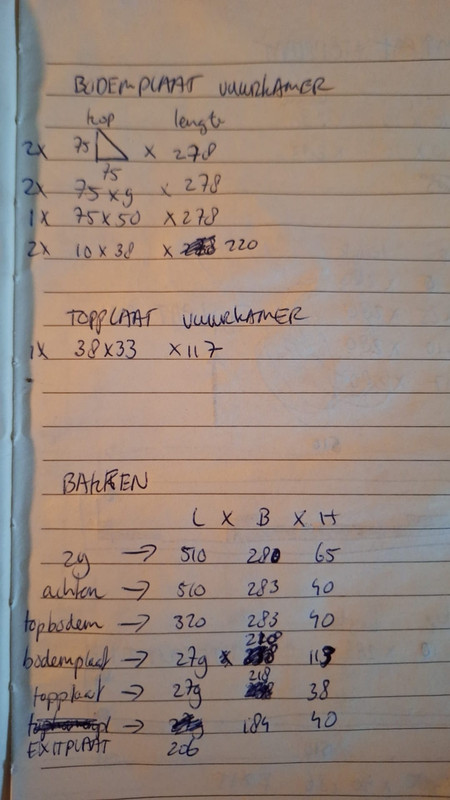 BODEMPLAAT VUURKAMER
kop lengte
2x 75 75 x 278
2x 75 x 9 x 278
1x 75 x 50 x 278
2x 10 x 38 x 220
TOPPLAAT VUURKAMER
1x 38 x 33 x 117
BAKKEN
L x B x H
zy → 510 280 65
achter → 510 283 40
topbodem → 320 283 40
bodemplaat → 279 x 218 113
topplaat → 279 218 38
→ 184 40
EXITPLAAT 206